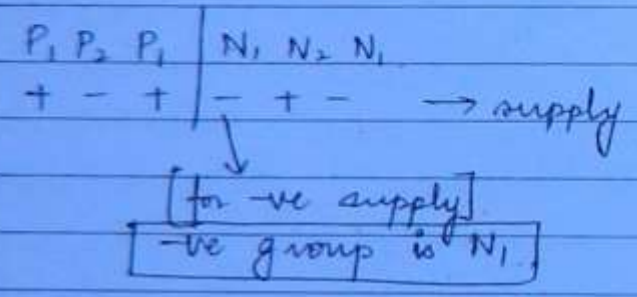 P₁ P₂ P₁ | N₁ N₂ N₁
+ - + | - + - → supply
[for -ve supply]
-ve group is N₁.